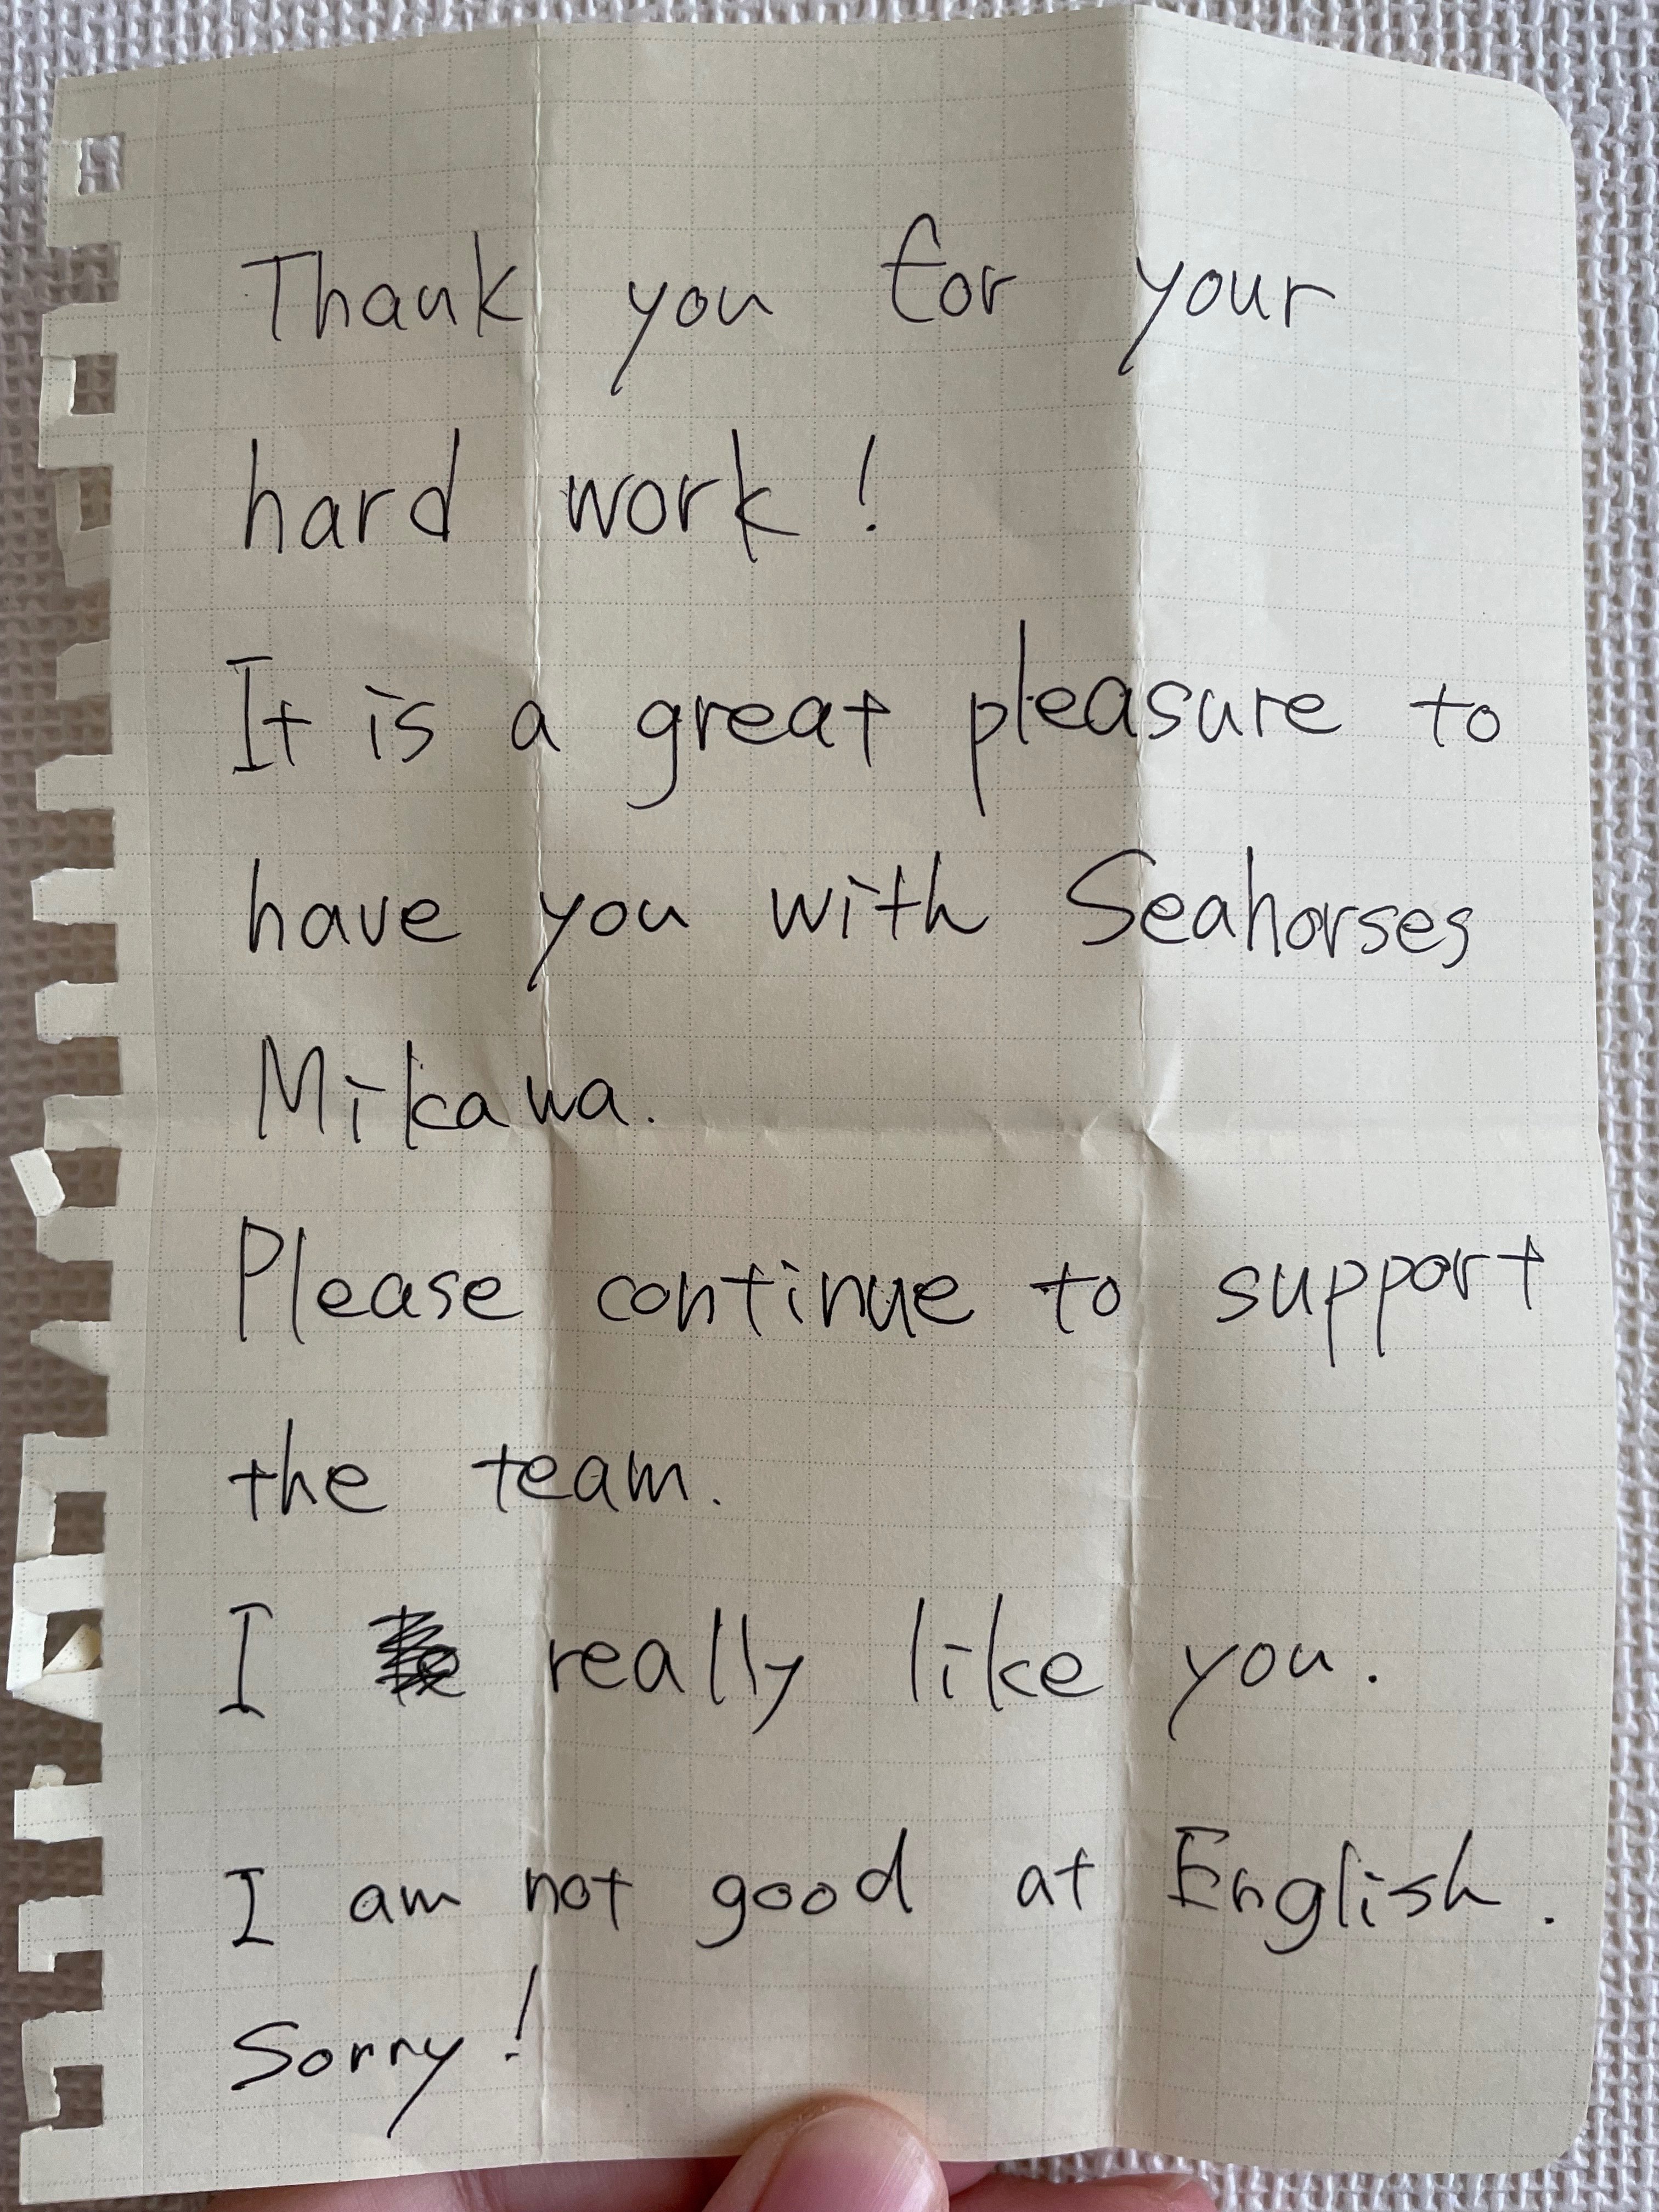 Thank you for your
hard work!
It is a great pleasure to
have you with Seahorses
Mikawa.
Please continue to support
the team.
I really like you.
I am not good at English.
Sorry!